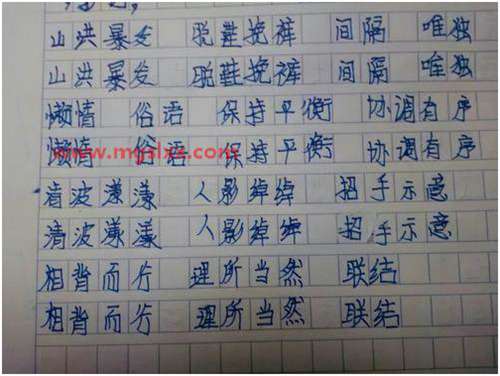 山洪暴发 脱鞋挽裤 间隔 唯独
山洪暴发 脱鞋挽裤 间隔 唯独
懒惰 俗语 保持平衡 协调有序
懒惰 俗语 保持平衡 协调有序
清波漾漾 人影绰绰 招手示意
清波漾漾 人影绰绰 招手示意
相背而行 理所当然 联结
相背而行 理所当然 联结